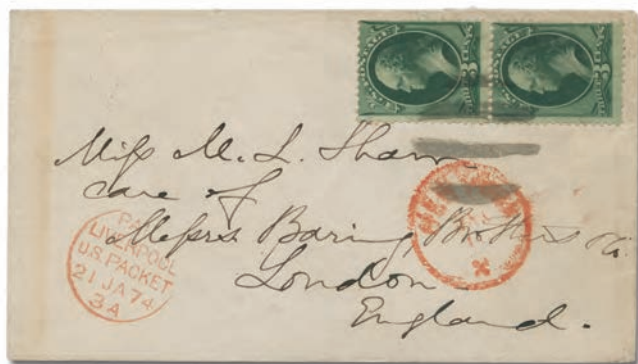 Miss M. L. Shaw
care of
Messrs. Baring Brothers &c.
London
England.
PAID
LIVERPOOL
U.S. PACKET
21 JA 74
3A